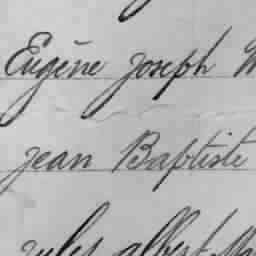 Eugène Joseph
Jean Baptiste
Jules Albert